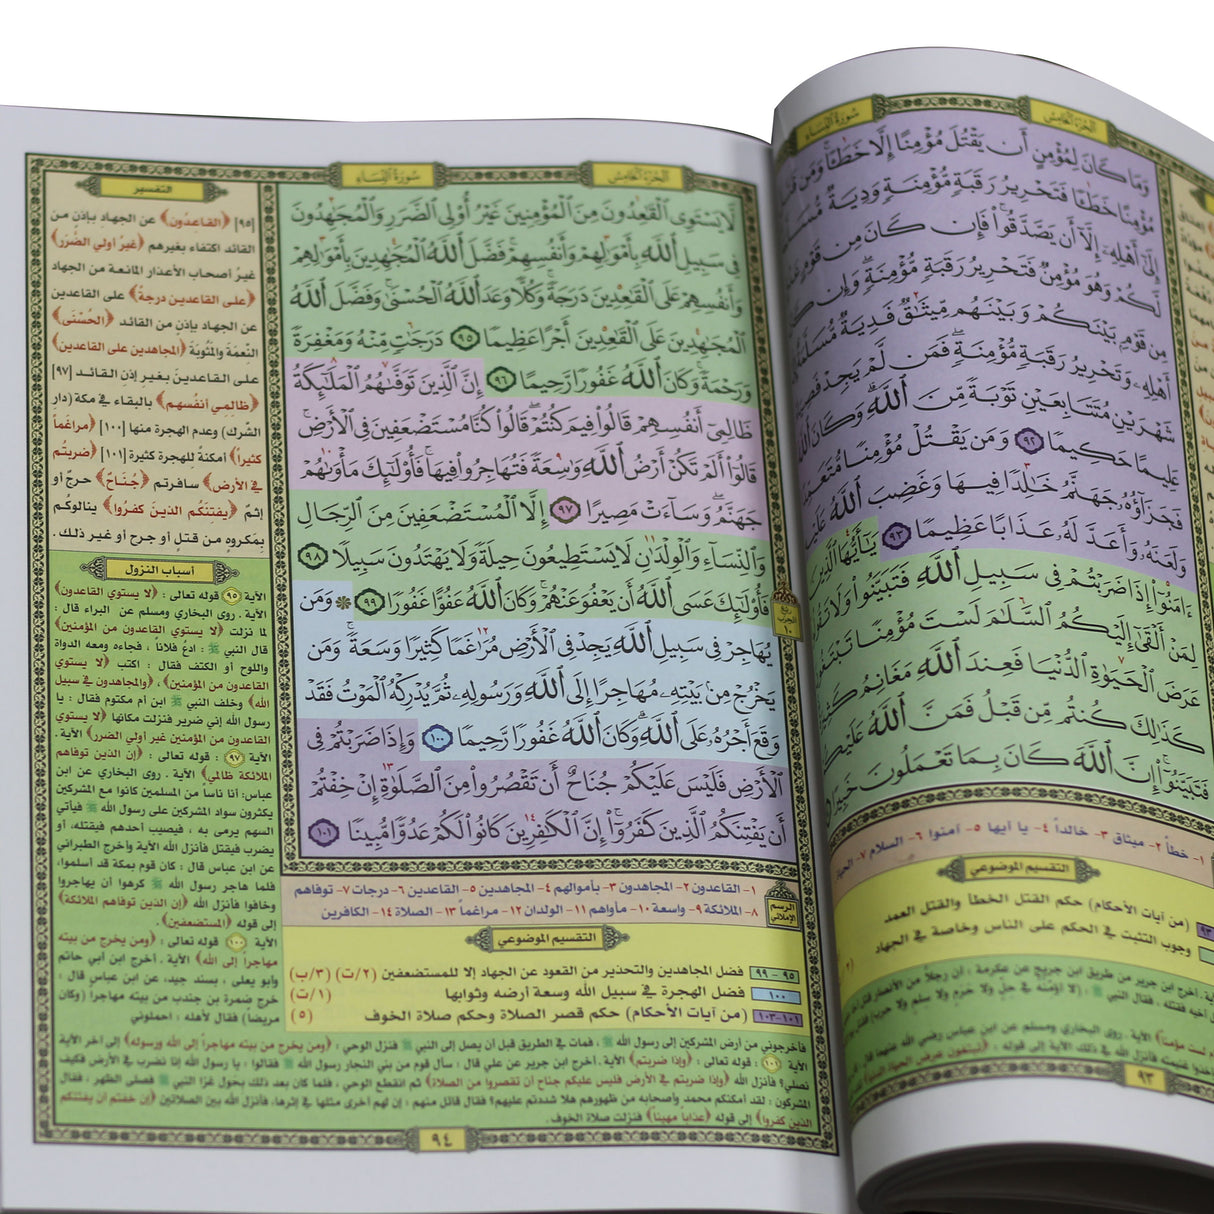 سُورَةُ النِّسَاءِ
الجُزءُ الخَامِسُ
وَمَا كَانَ لِمُؤْمِنٍ أَن يَقْتُلَ مُؤْمِنًا إِلَّا خَطَـًٔا ۚ وَمَن
مُؤْمِنًا خَطَـًٔا فَتَحْرِيرُ رَقَبَةٍ مُّؤْمِنَةٍ وَدِيَةٌ
إِلَىٰٓ أَهْلِهِۦٓ إِلَّآ أَن يَصَّدَّقُوا۟ ۚ فَإِن كَانَ مِن قَوْمٍ
لَّكُمْ وَهُوَ مُؤْمِنٌ فَتَحْرِيرُ رَقَبَةٍ مُّؤْمِنَةٍ ۖ وَإِن
مِن قَوْمٍۭ بَيْنَكُمْ وَبَيْنَهُم مِّيثَـٰقٌ فَدِيَةٌ مُّسَلَّمَةٌ
أَهْلِهِۦ وَتَحْرِيرُ رَقَبَةٍ مُّؤْمِنَةٍ ۖ فَمَن لَّمْ يَجِدْ
شَهْرَيْنِ مُتَتَابِعَيْنِ تَوْبَةً مِّنَ ٱللَّهِ ۗ وَكَانَ
عَلِيمًا حَكِيمًا ٩٢ وَمَن يَقْتُلْ مُؤْمِنًا
فَجَزَآؤُهُۥ جَهَنَّمُ خَـٰلِدًا فِيهَا وَغَضِبَ ٱللَّهُ
وَلَعَنَهُۥ وَأَعَدَّ لَهُۥ عَذَابًا عَظِيمًا ٩٣ يَـٰٓأَيُّهَا
ءَامَنُوٓا۟ إِذَا ضَرَبْتُمْ فِى سَبِيلِ ٱللَّهِ فَتَبَيَّنُوا۟ وَلَا
لِمَنْ أَلْقَىٰٓ إِلَيْكُمُ ٱلسَّلَـٰمَ لَسْتَ مُؤْمِنًا
عَرَضَ ٱلْحَيَوٰةِ ٱلدُّنْيَا فَعِندَ ٱللَّهِ مَغَانِمُ
كَذَٰلِكَ كُنتُم مِّن قَبْلُ فَمَنَّ ٱللَّهُ
فَتَبَيَّنُوٓا۟ ۚ إِنَّ ٱللَّهَ كَانَ بِمَا تَعْمَلُونَ
١- خطأ ٢- ميثاق ٣- خالداً ٤- يا أيها ٥- آمنوا ٦- السلام ٧- الحياة
التقسيم الموضوعي
٩٣ (من آيات الأحكام) حكم القتل الخطأ والقتل العمد
وجوب التثبت في الحكم على الناس وخاصة في الجهاد
٩٣
سُورَةُ النِّسَاءِ
الجُزءُ الخَامِسُ
لَّا يَسْتَوِى ٱلْقَـٰعِدُونَ مِنَ ٱلْمُؤْمِنِينَ غَيْرُ أُو۟لِى ٱلضَّرَرِ وَٱلْمُجَـٰهِدُونَ
فِى سَبِيلِ ٱللَّهِ بِأَمْوَٰلِهِمْ وَأَنفُسِهِمْ ۚ فَضَّلَ ٱللَّهُ ٱلْمُجَـٰهِدِينَ بِأَمْوَٰلِهِمْ
وَأَنفُسِهِمْ عَلَى ٱلْقَـٰعِدِينَ دَرَجَةً ۚ وَكُلًّا وَعَدَ ٱللَّهُ ٱلْحُسْنَىٰ ۚ وَفَضَّلَ ٱللَّهُ
ٱلْمُجَـٰهِدِينَ عَلَى ٱلْقَـٰعِدِينَ أَجْرًا عَظِيمًا ٩٥ دَرَجَـٰتٍ مِّنْهُ وَمَغْفِرَةً
وَرَحْمَةً ۚ وَكَانَ ٱللَّهُ غَفُورًا رَّحِيمًا ٩٦ إِنَّ ٱلَّذِينَ تَوَفَّىٰهُمُ ٱلْمَلَـٰٓئِكَةُ
ظَالِمِىٓ أَنفُسِهِمْ قَالُوا۟ فِيمَ كُنتُمْ ۖ قَالُوا۟ كُنَّا مُسْتَضْعَفِينَ فِى ٱلْأَرْضِ ۚ
قَالُوٓا۟ أَلَمْ تَكُنْ أَرْضُ ٱللَّهِ وَٰسِعَةً فَتُهَاجِرُوا۟ فِيهَا ۚ فَأُو۟لَـٰٓئِكَ مَأْوَىٰهُمْ
جَهَنَّمُ ۖ وَسَآءَتْ مَصِيرًا ٩٧ إِلَّا ٱلْمُسْتَضْعَفِينَ مِنَ ٱلرِّجَالِ
وَٱلنِّسَآءِ وَٱلْوِلْدَٰنِ لَا يَسْتَطِيعُونَ حِيلَةً وَلَا يَهْتَدُونَ سَبِيلًا ٩٨
فَأُو۟لَـٰٓئِكَ عَسَى ٱللَّهُ أَن يَعْفُوَ عَنْهُمْ ۚ وَكَانَ ٱللَّهُ عَفُوًّا غَفُورًا ٩٩ ۞ وَمَن
يُهَاجِرْ فِى سَبِيلِ ٱللَّهِ يَجِدْ فِى ٱلْأَرْضِ مُرَٰغَمًا كَثِيرًا وَسَعَةً ۚ وَمَن
يَخْرُجْ مِنۢ بَيْتِهِۦ مُهَاجِرًا إِلَى ٱللَّهِ وَرَسُولِهِۦ ثُمَّ يُدْرِكْهُ ٱلْمَوْتُ فَقَدْ
وَقَعَ أَجْرُهُۥ عَلَى ٱللَّهِ ۗ وَكَانَ ٱللَّهُ غَفُورًا رَّحِيمًا ١٠٠ وَإِذَا ضَرَبْتُمْ فِى
ٱلْأَرْضِ فَلَيْسَ عَلَيْكُمْ جُنَاحٌ أَن تَقْصُرُوا۟ مِنَ ٱلصَّلَوٰةِ إِنْ خِفْتُمْ
أَن يَفْتِنَكُمُ ٱلَّذِينَ كَفَرُوٓا۟ ۚ إِنَّ ٱلْكَـٰفِرِينَ كَانُوا۟ لَكُمْ عَدُوًّا مُّبِينًا ١٠١
ربع
الحزب
١٠
الرسم
الإملائي
١- القاعدون ٢- المجاهدون ٣- بأموالهم ٤- المجاهدين ٥- القاعدين ٦- درجات ٧- توفاهم
٨- الملائكة ٩- واسعة ١٠- مأواهم ١١- الولدان ١٢- مراغماً ١٣- الصلاة ١٤- الكافرين
التقسيم الموضوعي
٩٥ - ٩٩ فضل المجاهدين والتحذير من القعود عن الجهاد إلا للمستضعفين (٢/ت) (٣/ب)
١٠٠ فضل الهجرة في سبيل الله وسعة أرضه وثوابها (١/ت)
١٠١-١٠٣ (من آيات الأحكام) حكم قصر الصلاة وحكم صلاة الخوف (٥)
التفسير
[٩٥] ﴿القاعدُون﴾ عن الجهاد بإذن من
القائد اكتفاء بغيرهم ﴿غيرُ أولي الضَّرَر﴾
غيرُ أصحاب الأعذار المانعة من الجهاد
﴿على القاعدين درجةً﴾ على القاعدين
عن الجهاد بإذن من القائد ﴿الحُسْنَى﴾
النِّعمَة والمَثُوبَة ﴿المجاهدين على القاعدين﴾
على القاعدينَ بغير إذن القائد [٩٧]
﴿ظالمي أنفُسهم﴾ بالبقاء في مكة (دار
الشّرك) وعدم الهجرة منها [١٠٠] ﴿مراغَماً
كثيراً﴾ أمكنةً للهجرة كثيرة [١٠١] ﴿ضربتُم
في الأرض﴾ سافرتم ﴿جُنَاحٌ﴾ حرجٌ أو
إثمٌ ﴿يفتنَكُم الذين كفرُوا﴾ ينالُوكُم
بمَكروهٍ من قتلٍ أو جرح أو غير ذلك .
أسباب النزول
الآية ٩٥ قوله تعالى : ﴿لا يستوي القاعدون﴾
الآية . روى البخاري ومسلم عن البراء قال :
لما نزلت ﴿لا يستوي القاعدون من المؤمنين﴾
قال النبي ﷺ : ادعُ فلاناً ، فجاءه ومعه الدواة
واللوح أو الكتف فقال : اكتب ﴿لا يستوي
القاعدون من المؤمنين﴾ ، ﴿والمجاهدون في سبيل
الله﴾ وخلف النبي ﷺ ابن أم مكتوم فقال : يا
رسول الله إني ضرير فنزلت مكانها ﴿لا يستوي
القاعدون من المؤمنين غير أولي الضرر﴾ الآية .
الآية ٩٧ : قوله تعالى : ﴿إن الذين توفاهم
الملائكة ظالمي﴾ الآية . روى البخاري عن ابن
عباس: أن ناساً من المسلمين كانوا مع المشركين
يكثرون سواد المشركين على رسول الله ﷺ فيأتي
السهم يرمى به ، فيصيب أحدهم فيقتله، أو
يضرب فيقتل فأنزل الله الآية وأخرج الطبراني
عن ابن عباس قال : كان قوم بمكة قد أسلموا،
فلما هاجر رسول الله ﷺ كرهوا أن يهاجروا
وخافوا فأنزل الله ﴿إن الذين توفاهم الملائكة﴾
إلى قوله ﴿المستضعفين﴾ .
الآية ١٠٠ قوله تعالى : ﴿ومن يخرج من بيته
مهاجراً إلى الله﴾ الآية . أخرج ابن أبي حاتم
وأبو يعلى ، بسند جيد، عن ابن عباس قال :
خرج ضمرة بن جندب من بيته مهاجراً (وكان
مريضاً) فقال لأهله : احملوني
فأخرجوني من أرض المشركين إلى رسول الله ﷺ ، فمات في الطريق قبل أن يصل إلى النبي ﷺ فنزل الوحي : ﴿ومن يخرج من بيته مهاجراً إلى الله ورسوله﴾ إلى آخر الآية
الآية ١٠١ : قوله تعالى : ﴿وإذا ضربتم﴾ الآية . أخرج ابن جرير عن علي قال : سأل قوم من بني النجار رسول الله ﷺ فقالوا : يا رسول الله إنا نضرب في الأرض فكيف
نصلي؟ فأنزل الله ﴿وإذا ضربتم في الأرض فليس عليكم جناح أن تقصروا من الصلاة﴾ ثم انقطع الوحي ، فلما كان بعد ذلك بحول غزا النبي ﷺ فصلى الظهر ، فقال
المشركون : لقد أمكنكم محمد وأصحابه من ظهورهم هلا شددتم عليهم؟ فقال قائل منهم : إن لهم أخرى مثلها في إثرها، فأنزل الله بين الصلاتين ﴿إن خفتم أن يفتنكم
الذين كفروا﴾ إلى قوله ﴿عذاباً مهيناً﴾ فنزلت صلاة الخوف.
٩٤